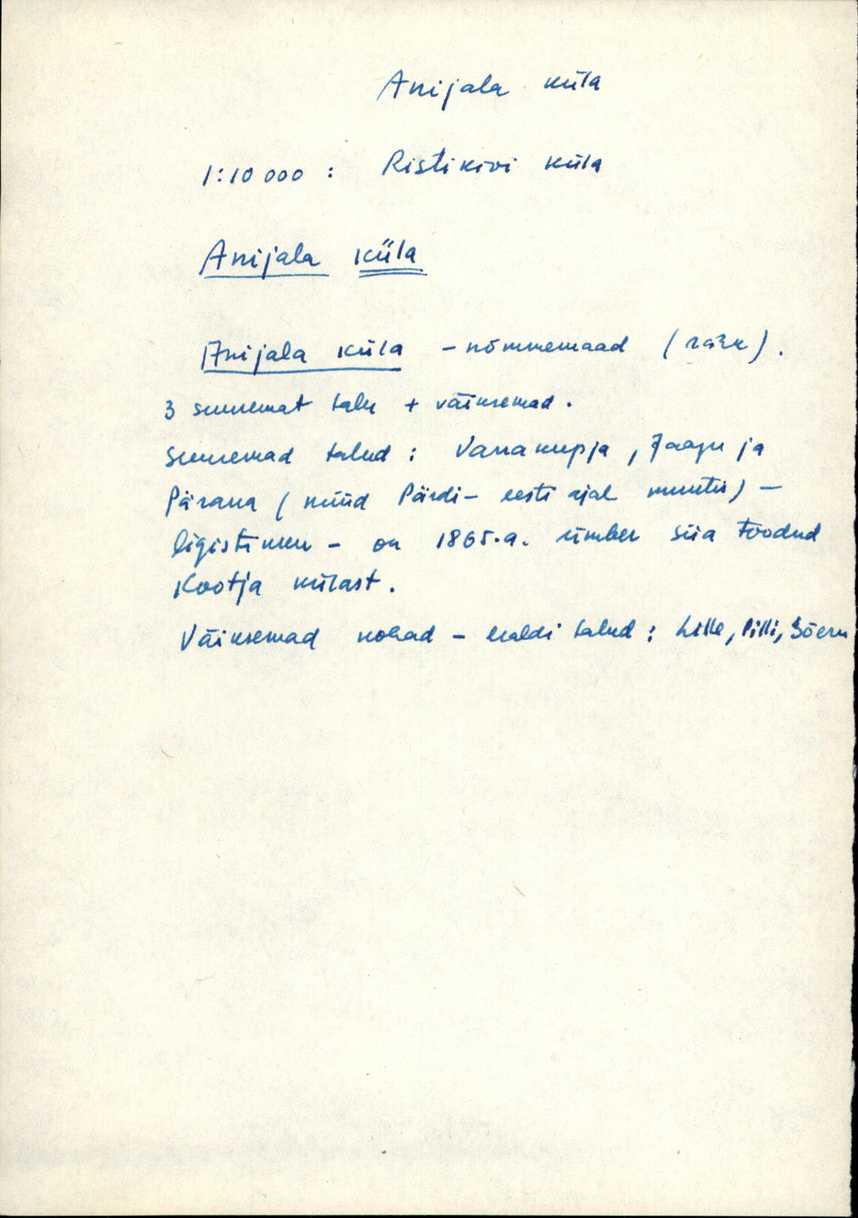 Anijala küla
1:10 000 : Ristikivi küla
Anijala küla
Anijala küla – nõmmemaad (räik).
3 suuremat talu + väiksemad.
Suuremad talud : Vanakupja, Jaagu ja
Pärana (nüüd Pärdi – eesti ajal muutis) –
ligistikku – on 1865.a. ümber siia toodud
Kootja külast.
Väiksemad kohad – eraldi talud : Lille, Pilli, Sõeru